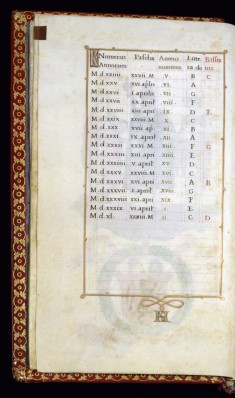 Numerus Pascha Aureus
Annorum numerus
M d xxiiii xxvii M v B C
M d xxv xvi aplis vi A
M d xxvi i aprilis vii G
M d xxvii xxi april viii F
M d xxviii xii april ix D
M d xxix xxviii M x C
M d xxx xvii ap xi B
M d xxxi ix april xii A
M d xxxii xxxi M xiii F G
M d xxxiii xiii apri xiiii E
M d xxxiiii v april xv D
M d xxxv xxviii M xvi C
M d xxxvi xvi apri xvii A B
M d xxxvii i april xviii G
M d xxxviii xxi apri xix F
M d xxxix vi april i E
M d xl xxviii M ii C D